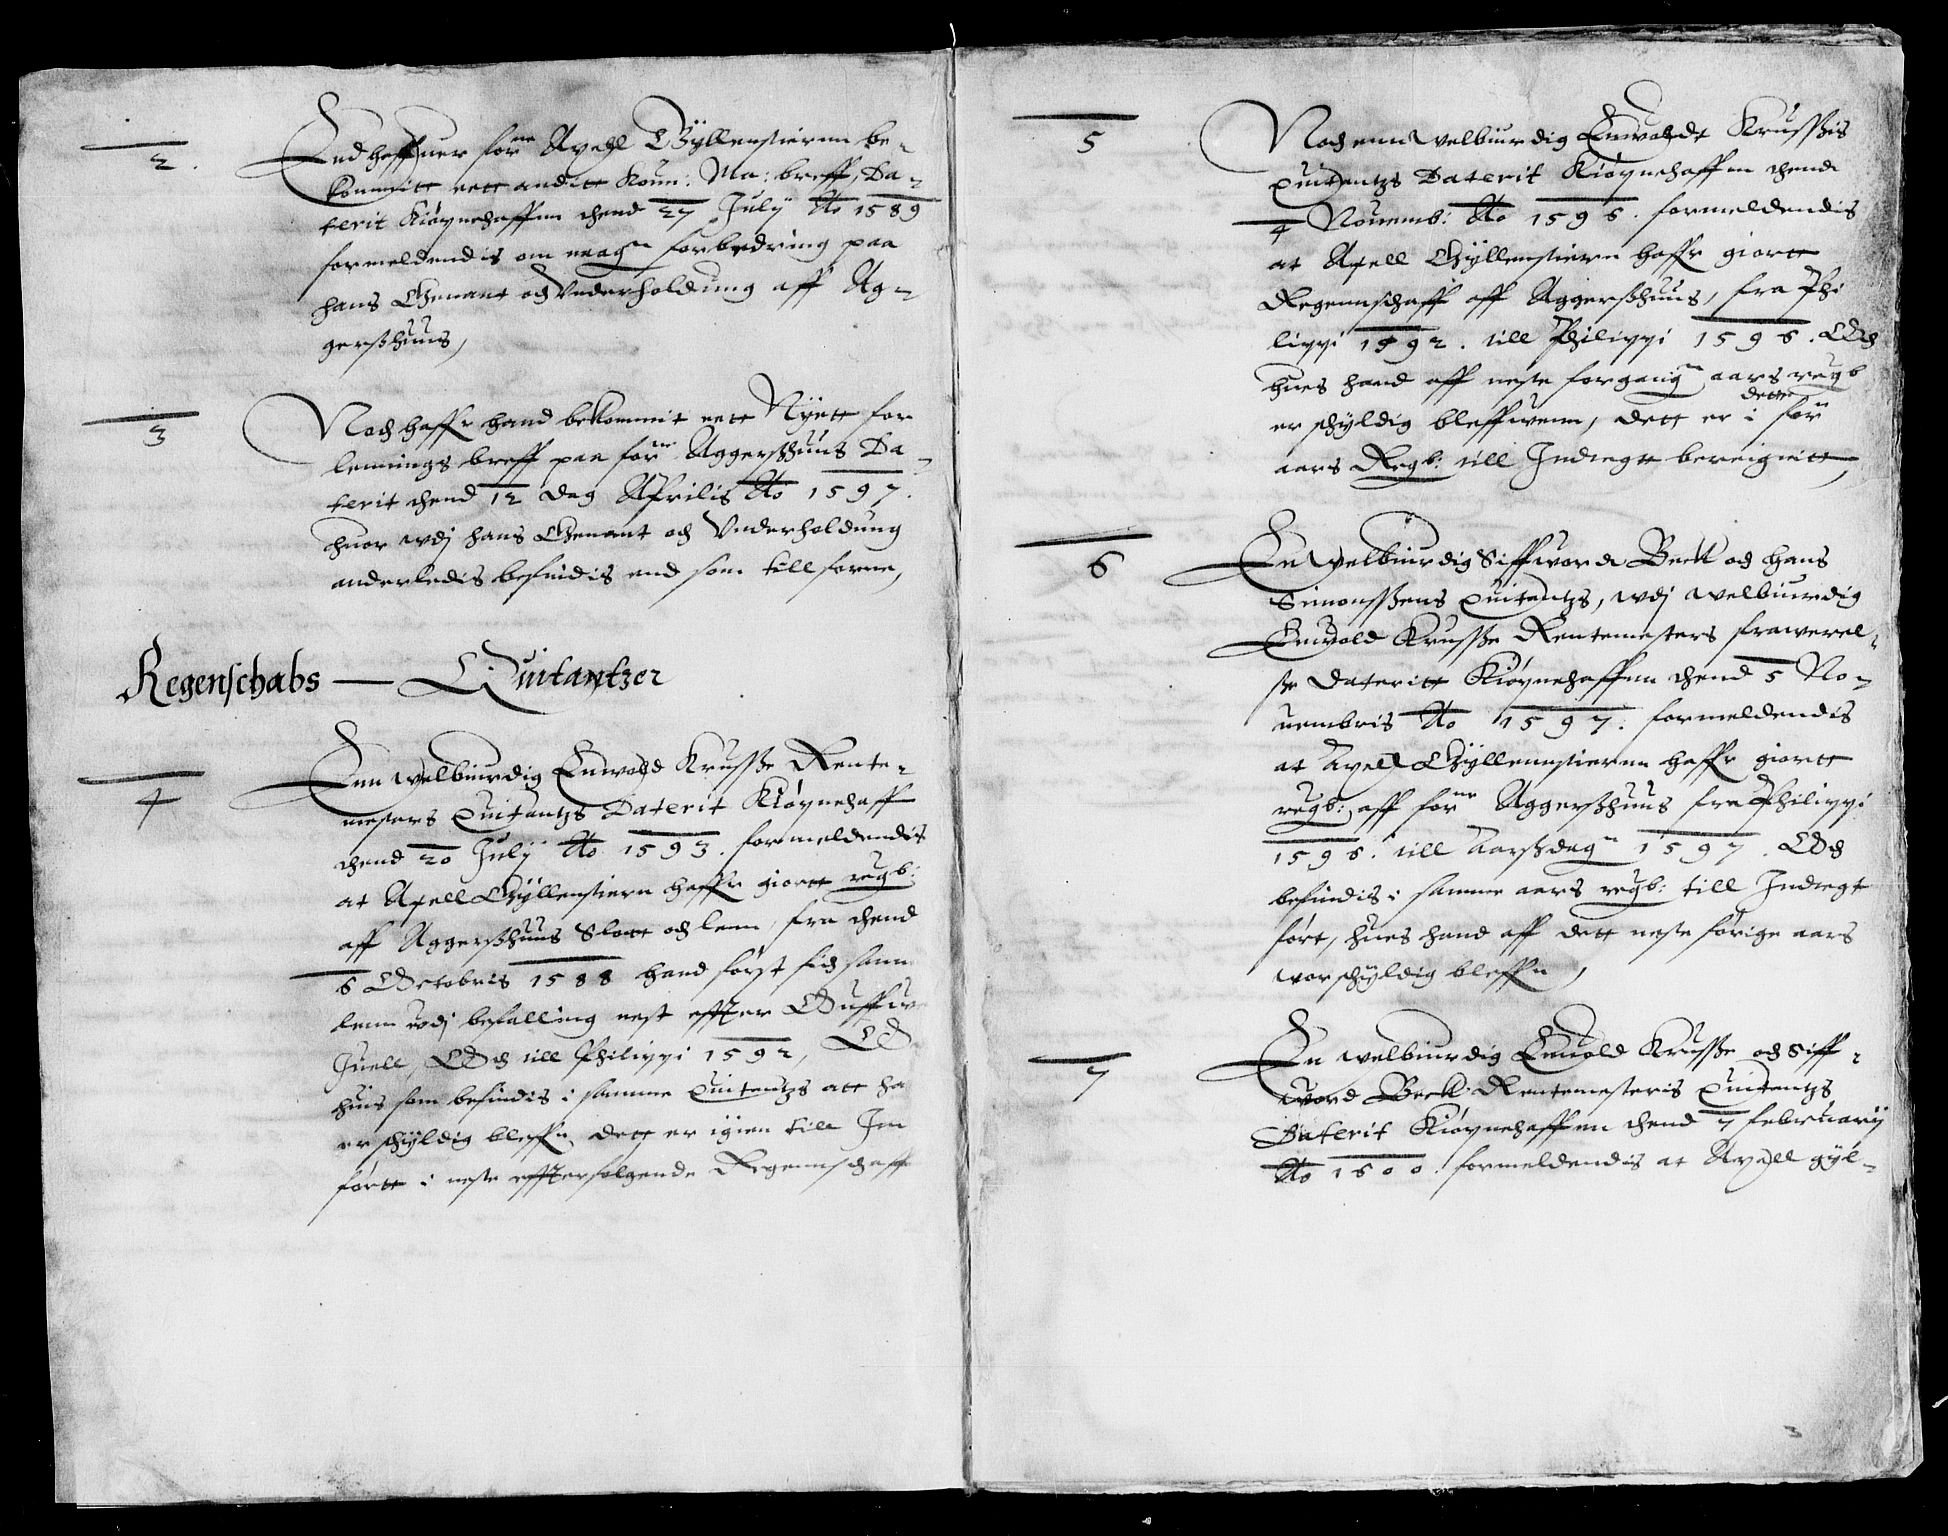 2.
End haffuer forne Axell Gyllenstiernn be-
kommitt ett anditt Konn: Ma: breff, Da-
terit Kiøpnehaffnn thend 27 July Ao 1589
formeldendis om nogn forbedring paa
hans Genant och Vnderholdung aff Ag-
gerszhuus,
3
Noch haffr hand bekommit ett Nyett for
lennings breff paa forne Aggerszhuus Da-
terit thend 12 dag Aprilis Ao 1597.
huor wdj hans Genant och Vnderholdung
anderledis befindis end som tillforne,
Regenschabs — Quitantzer
4
Enn welbiurdig Enwold Krusze Rente-
mesters Quitantzs Daterit Kiøpnehaffn
thend 20 July Ao 1593. formeldendis
at Axell Gyllenstiern haffr giortt regb:
aff Aggerszhuus Slott och lenn, fra thend
6 Octobris 1588 hand først fich samme
lenn wdj befalling nest effter Oluffw
Juell, Och till Philippi 1592, Och
huis som befindis i samme Quitantzs att ha
er schyldig bleffn, dett er igien till In
førtt i neste effterfølgende Regennschaff
5
Noch enn welbiurdig Enwoldt Kruszis
Quitantzs Daterit Kiøpnehaffnn thend
4 Nouemb: Ao 1596. formeldendis
at Axell Gyllenstiern haffr giortt
Regennschaff aff Aggerszhuus, fra Phi
lippi 1592. till Philippi 1596. Och
hues hand aff neste forgangn aars regb
er schyldig bleffwenn, dett er i dette for
aars Regb: till Indtegt beregnitt,
6
En welbiurdig Siffword Beck och Hans
Simonszens Quitantzs, wdj welbiurdig
Enwold Krusze Rentemesters frawerel-
sze Dateritt Kiøpnehaffnn thend 5 No-
uembris Ao 1597. formeldendis
at Axell Gyllennstiernn haffr giortt
regb: aff forne Aggerszhuus fra Philippi
1596. till Aarszdagn 1597. Och
befindis i samme aars regb: till Indtegt
ført, hues hand aff dett neste førige aars
wor schyldig bleffn,
7
En welbiurdig Enuold Krusze och Siff-
word Beck Rentemesteris Quitantzs
Daterit Kiøpnehaffnn thend 7 februarij
Ao 1600. formeldendis at Axell gyl-
3